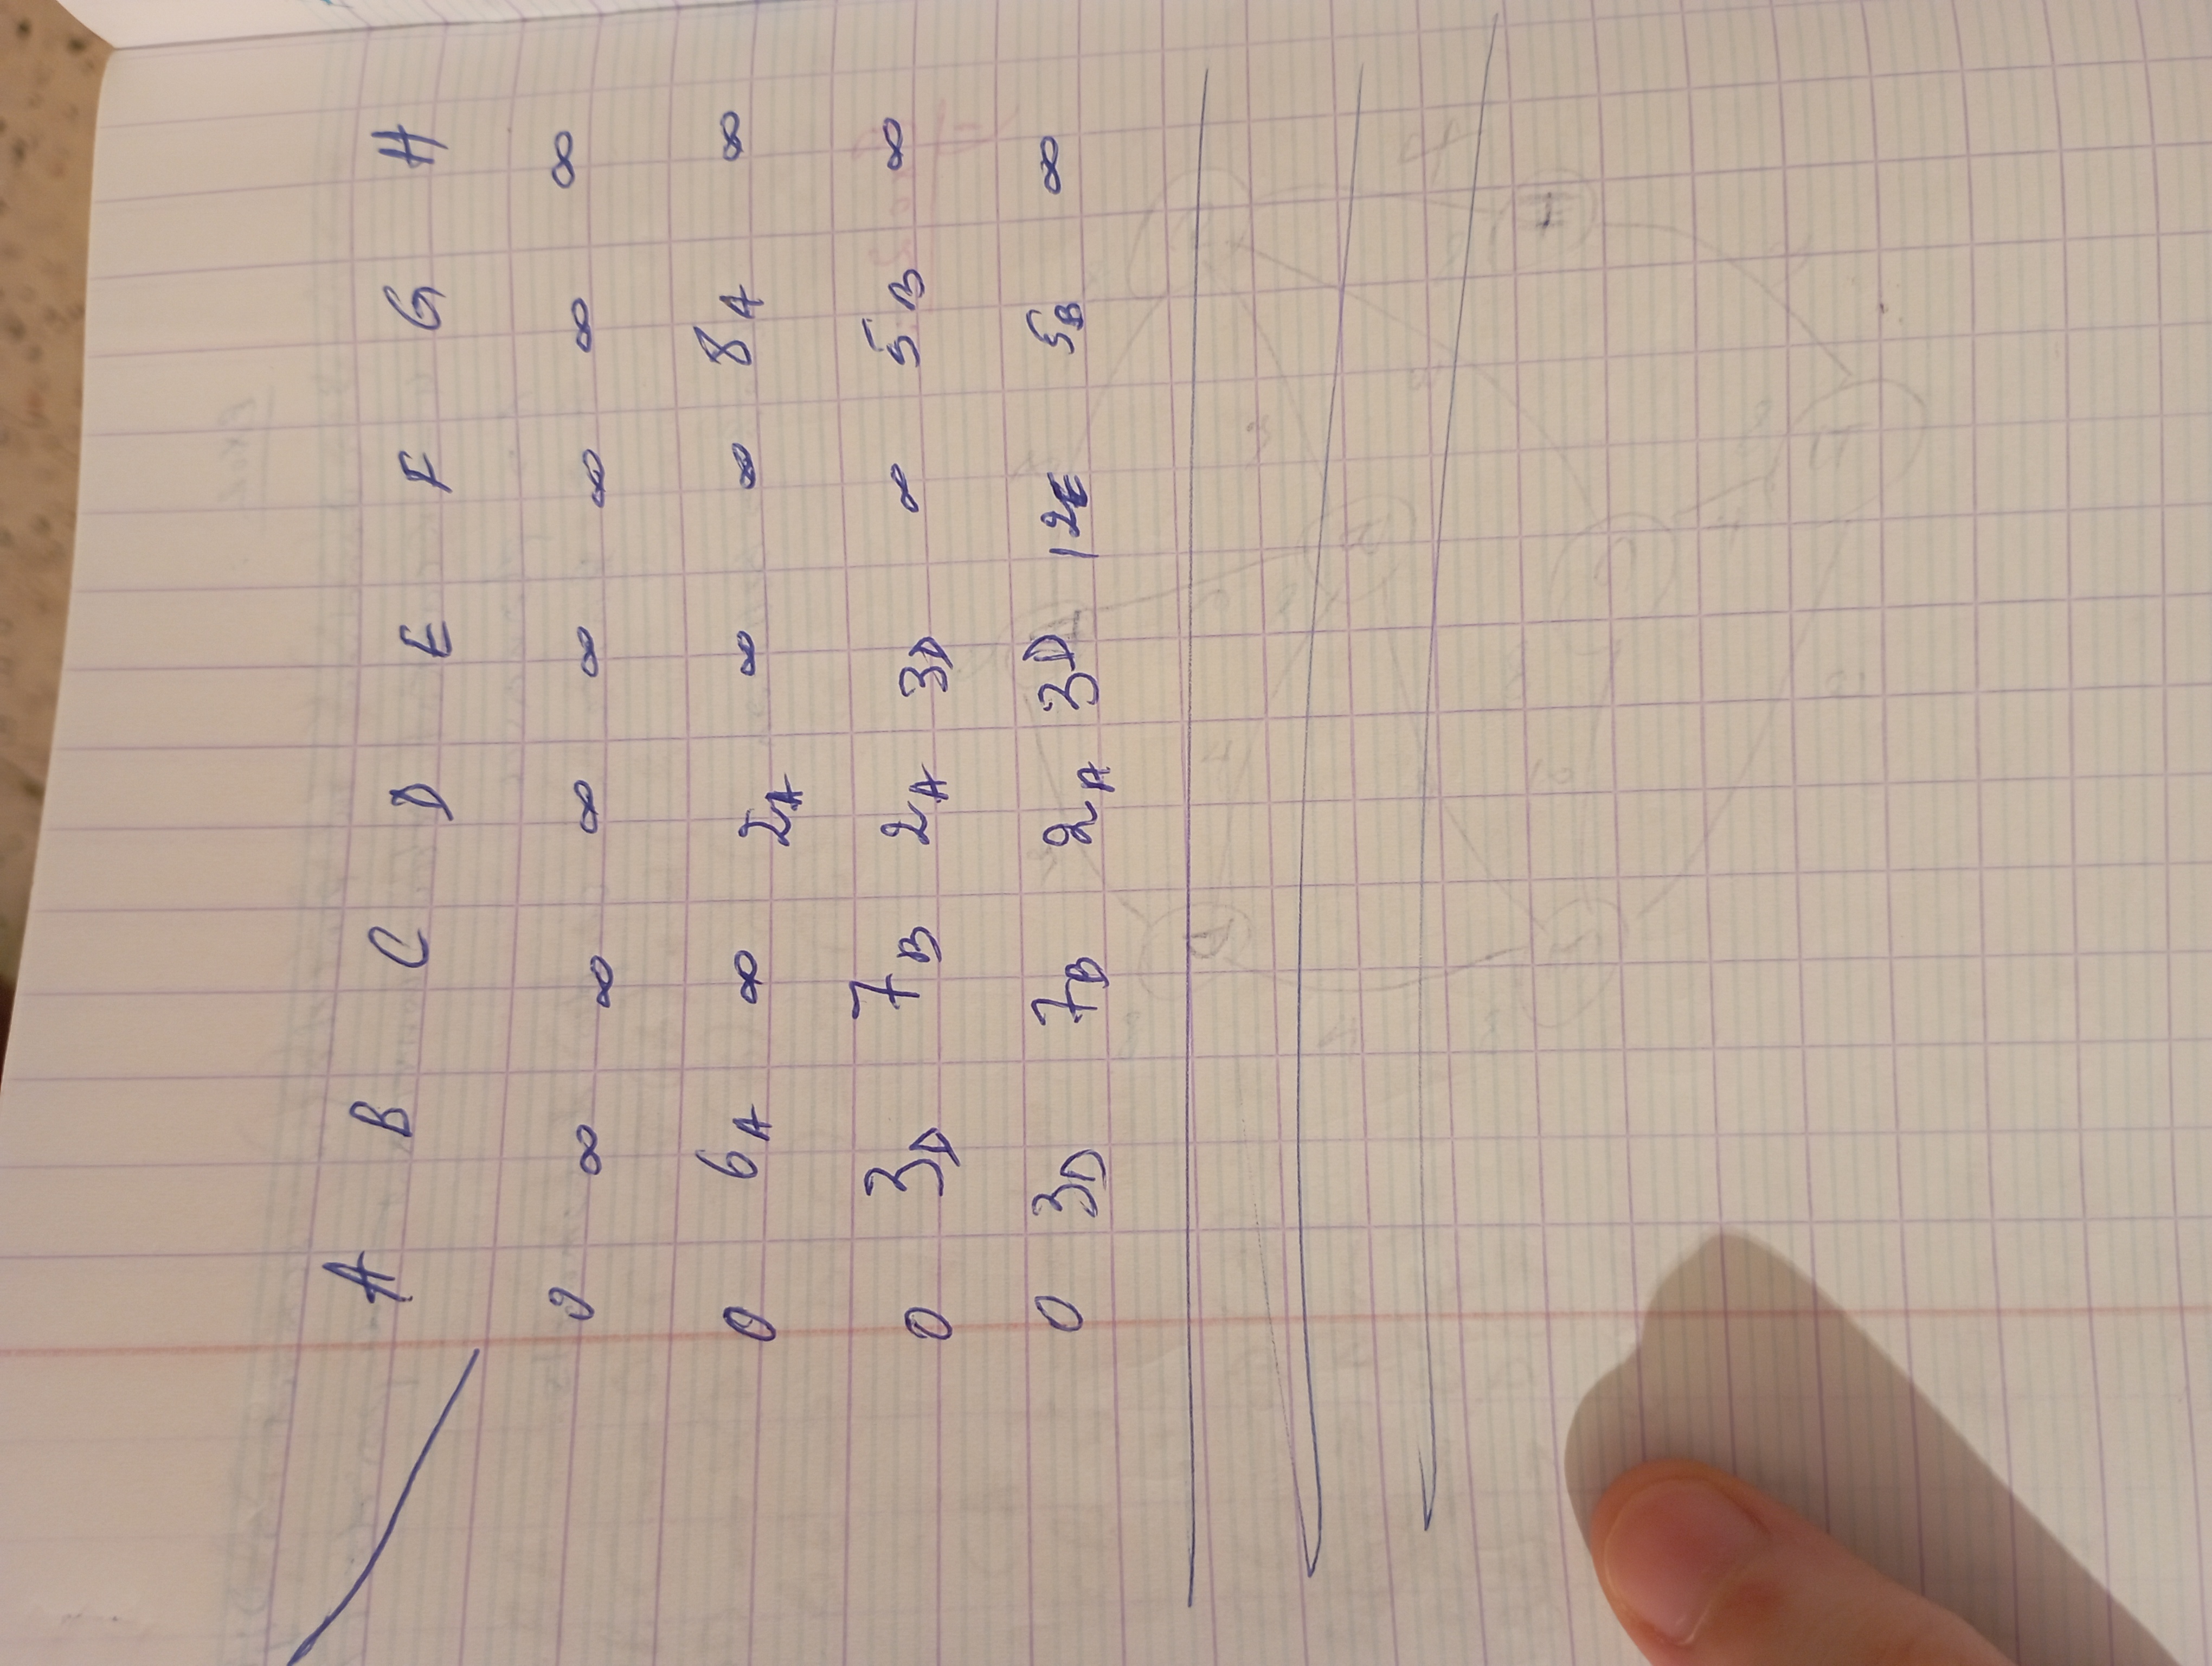 A B C D E F G H
0 ∞ ∞ ∞ ∞ ∞ ∞ ∞
0 6A ∞ 2A ∞ ∞ 8A ∞
0 3D 7B 2A 3D ∞ 5B ∞
0 3D 7B 2A 3D 12E 5B ∞